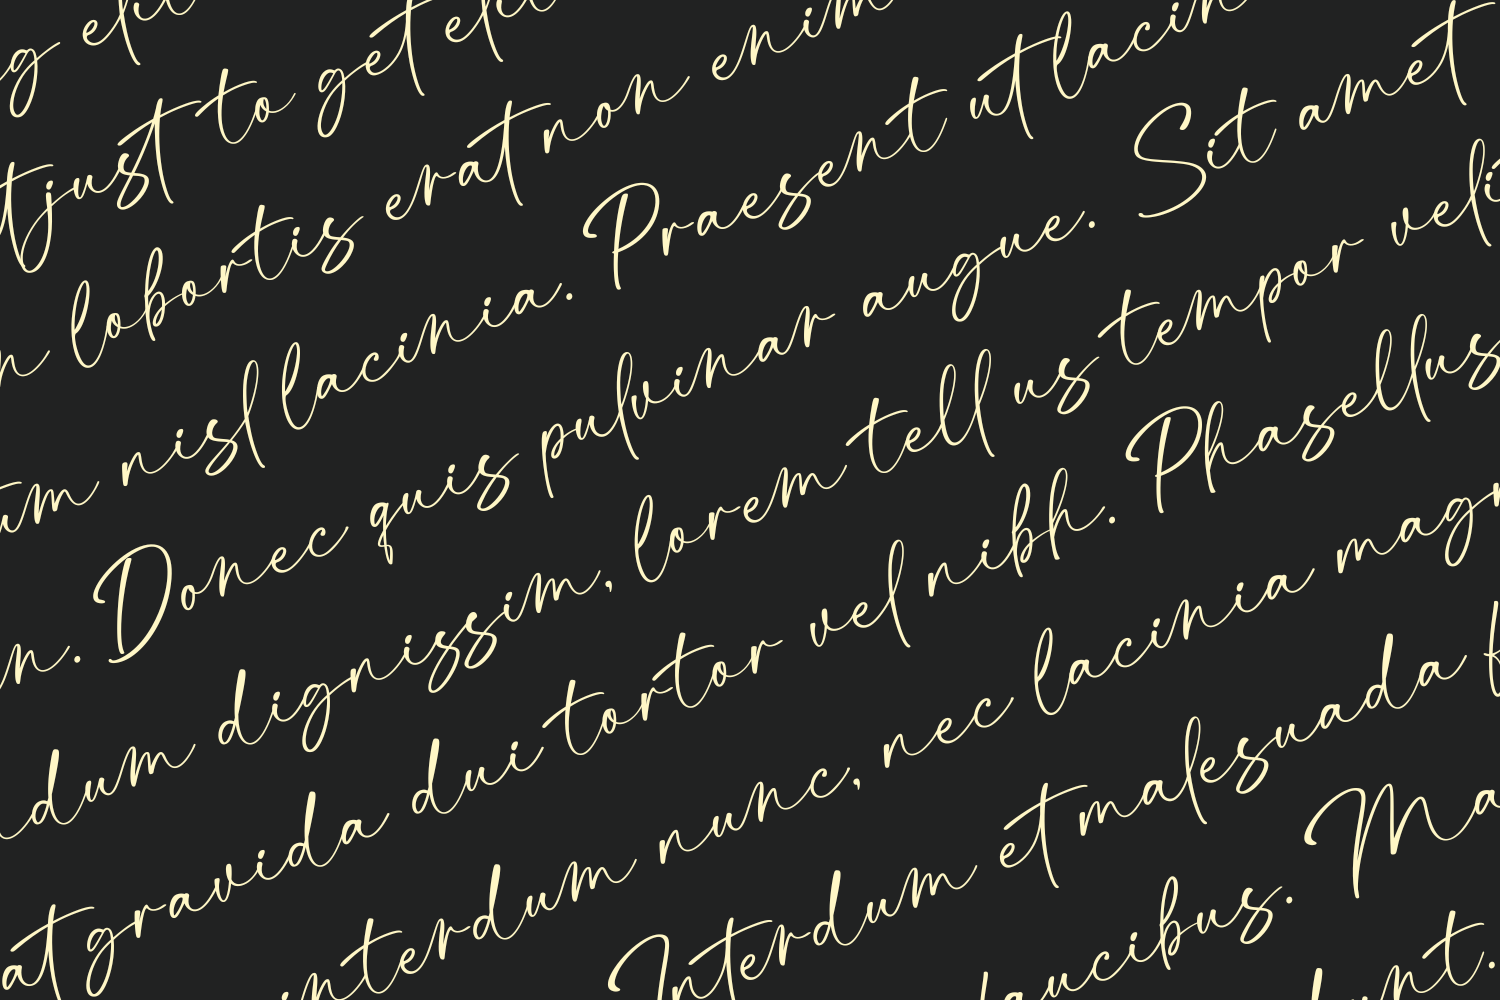 g elit
t just to get elit
n lobortis erat non enim
um nisl lacinia. Praesent ut lacin
n. Donec quis pulvinar augue. Sit amet
dum dignissim, lorem tell us tempor veli
at gravida dui tortor vel nibh. Phasellus
interdum nunc, nec lacinia magn
Interdum et malesuada f
aucibus. Ma
dunt.